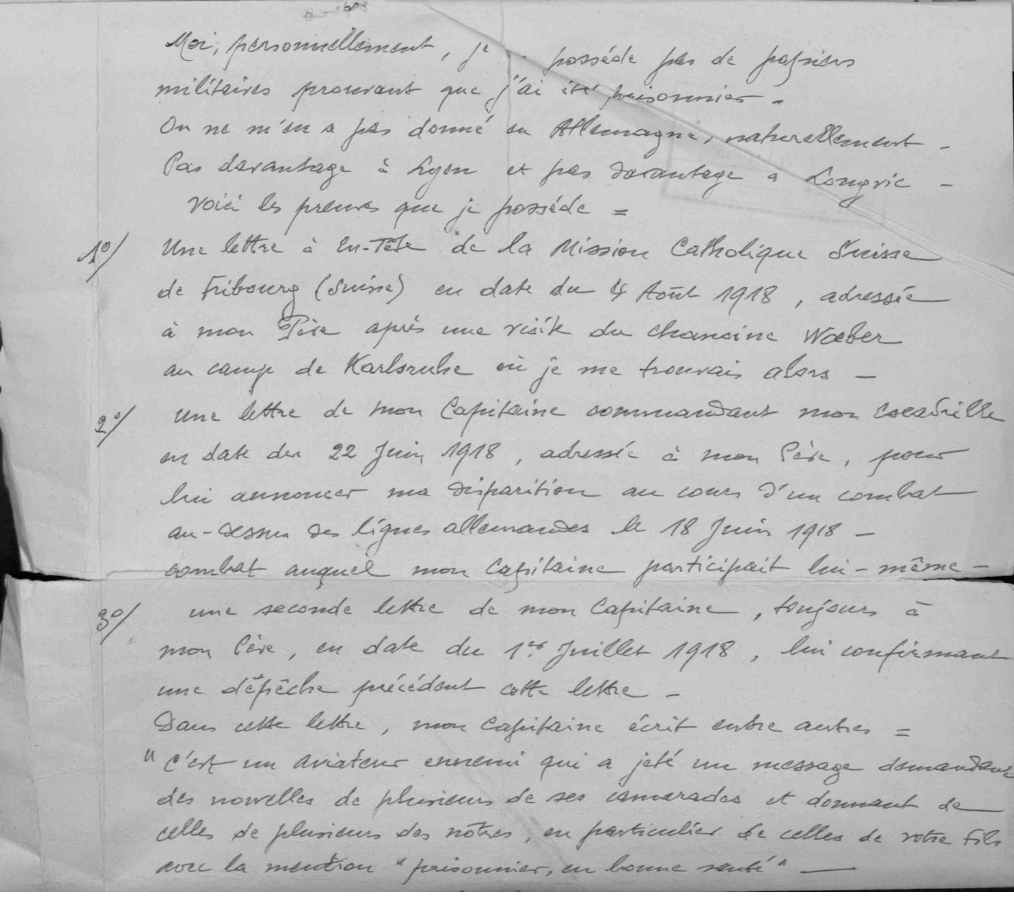 Moi, personnellement, je possède pas de papiers
militaires prouvant que j'ai été prisonnier -
On ne m'en a pas donné en Allemagne, naturellement -
Pas davantage à Lyon et pas davantage à Longvic -
Voici les preuves que je possède =
1°/ Une lettre à En-Tête de la Mission Catholique Suisse
de Fribourg (Suisse) en date du 4 Août 1918, adressée
à mon Père après une visite du chanoine Waeber
au camp de Karlsruhe où je me trouvais alors -
2°/ une lettre de mon Capitaine commandant mon escadrille
en date du 22 Juin 1918, adressée à mon Père, pour
lui annoncer ma disparition au cours d'un combat
au-dessus des lignes allemandes le 18 Juin 1918 -
combat auquel mon Capitaine participait lui-même -
3°/ une seconde lettre de mon Capitaine, toujours à
mon Père, en date du 1er Juillet 1918, lui confirmant
une dépêche précédant cette lettre -
Dans cette lettre, mon Capitaine écrit entre autres =
"C'est un aviateur ennemi qui a jeté un message demandant
des nouvelles de plusieurs de ses camarades et donnant de
celles de plusieurs des nôtres, en particulier de celles de votre fils
avec la mention "prisonnier, en bonne santé" -